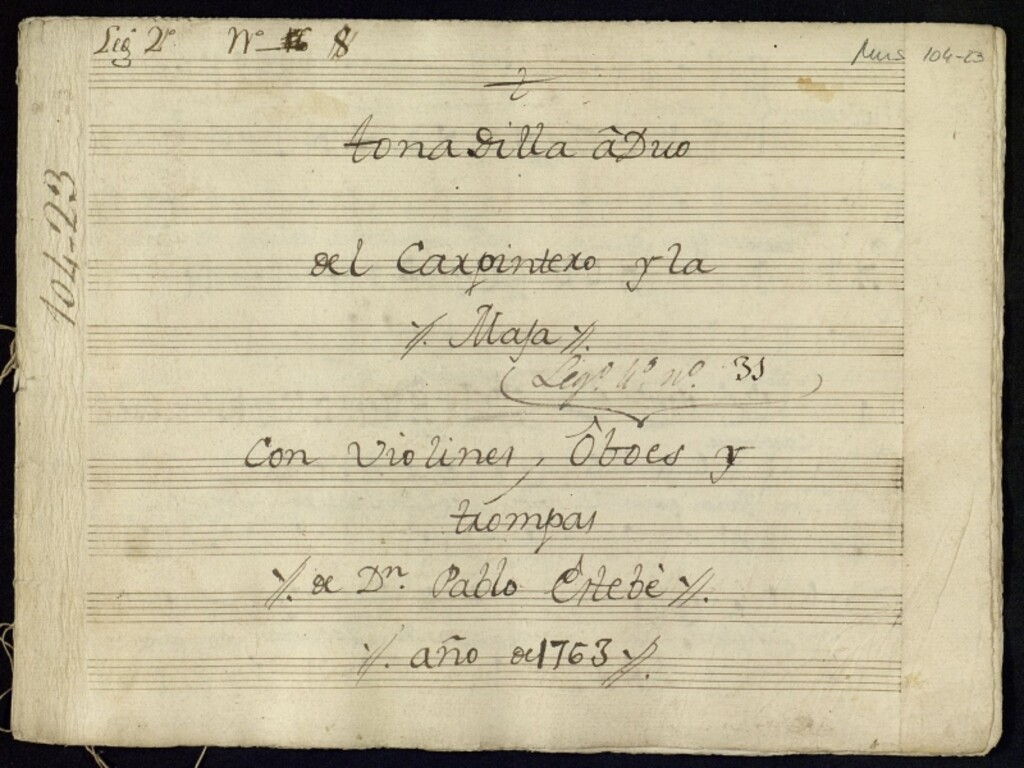 Leg 2º Nº 8
Mus 104-23
104-23
tonadilla â Duo
del Carpintero y la
Maja
Legº. 4º. nº. 31
Con Violines, Ôboes y
trompas
de Dn. Pablo Êstebè
año de 1763